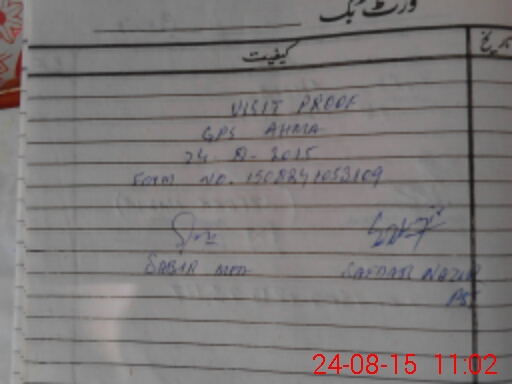 وزٹ بک
کیفیت
تاریخ
VISIT PROOF
GPS AHMA
24-8-2015
FORM NO. 1508241053109
SABIR
SAFDAR NAZIR
PST
24-08-15 11:02